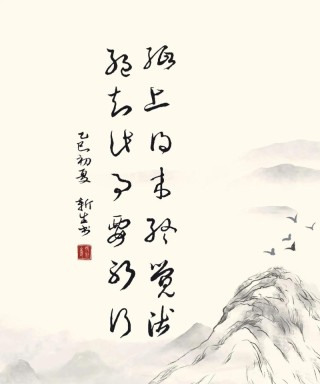 纸上得来终觉浅
绝知此事要躬行
乙巳初夏 新生书